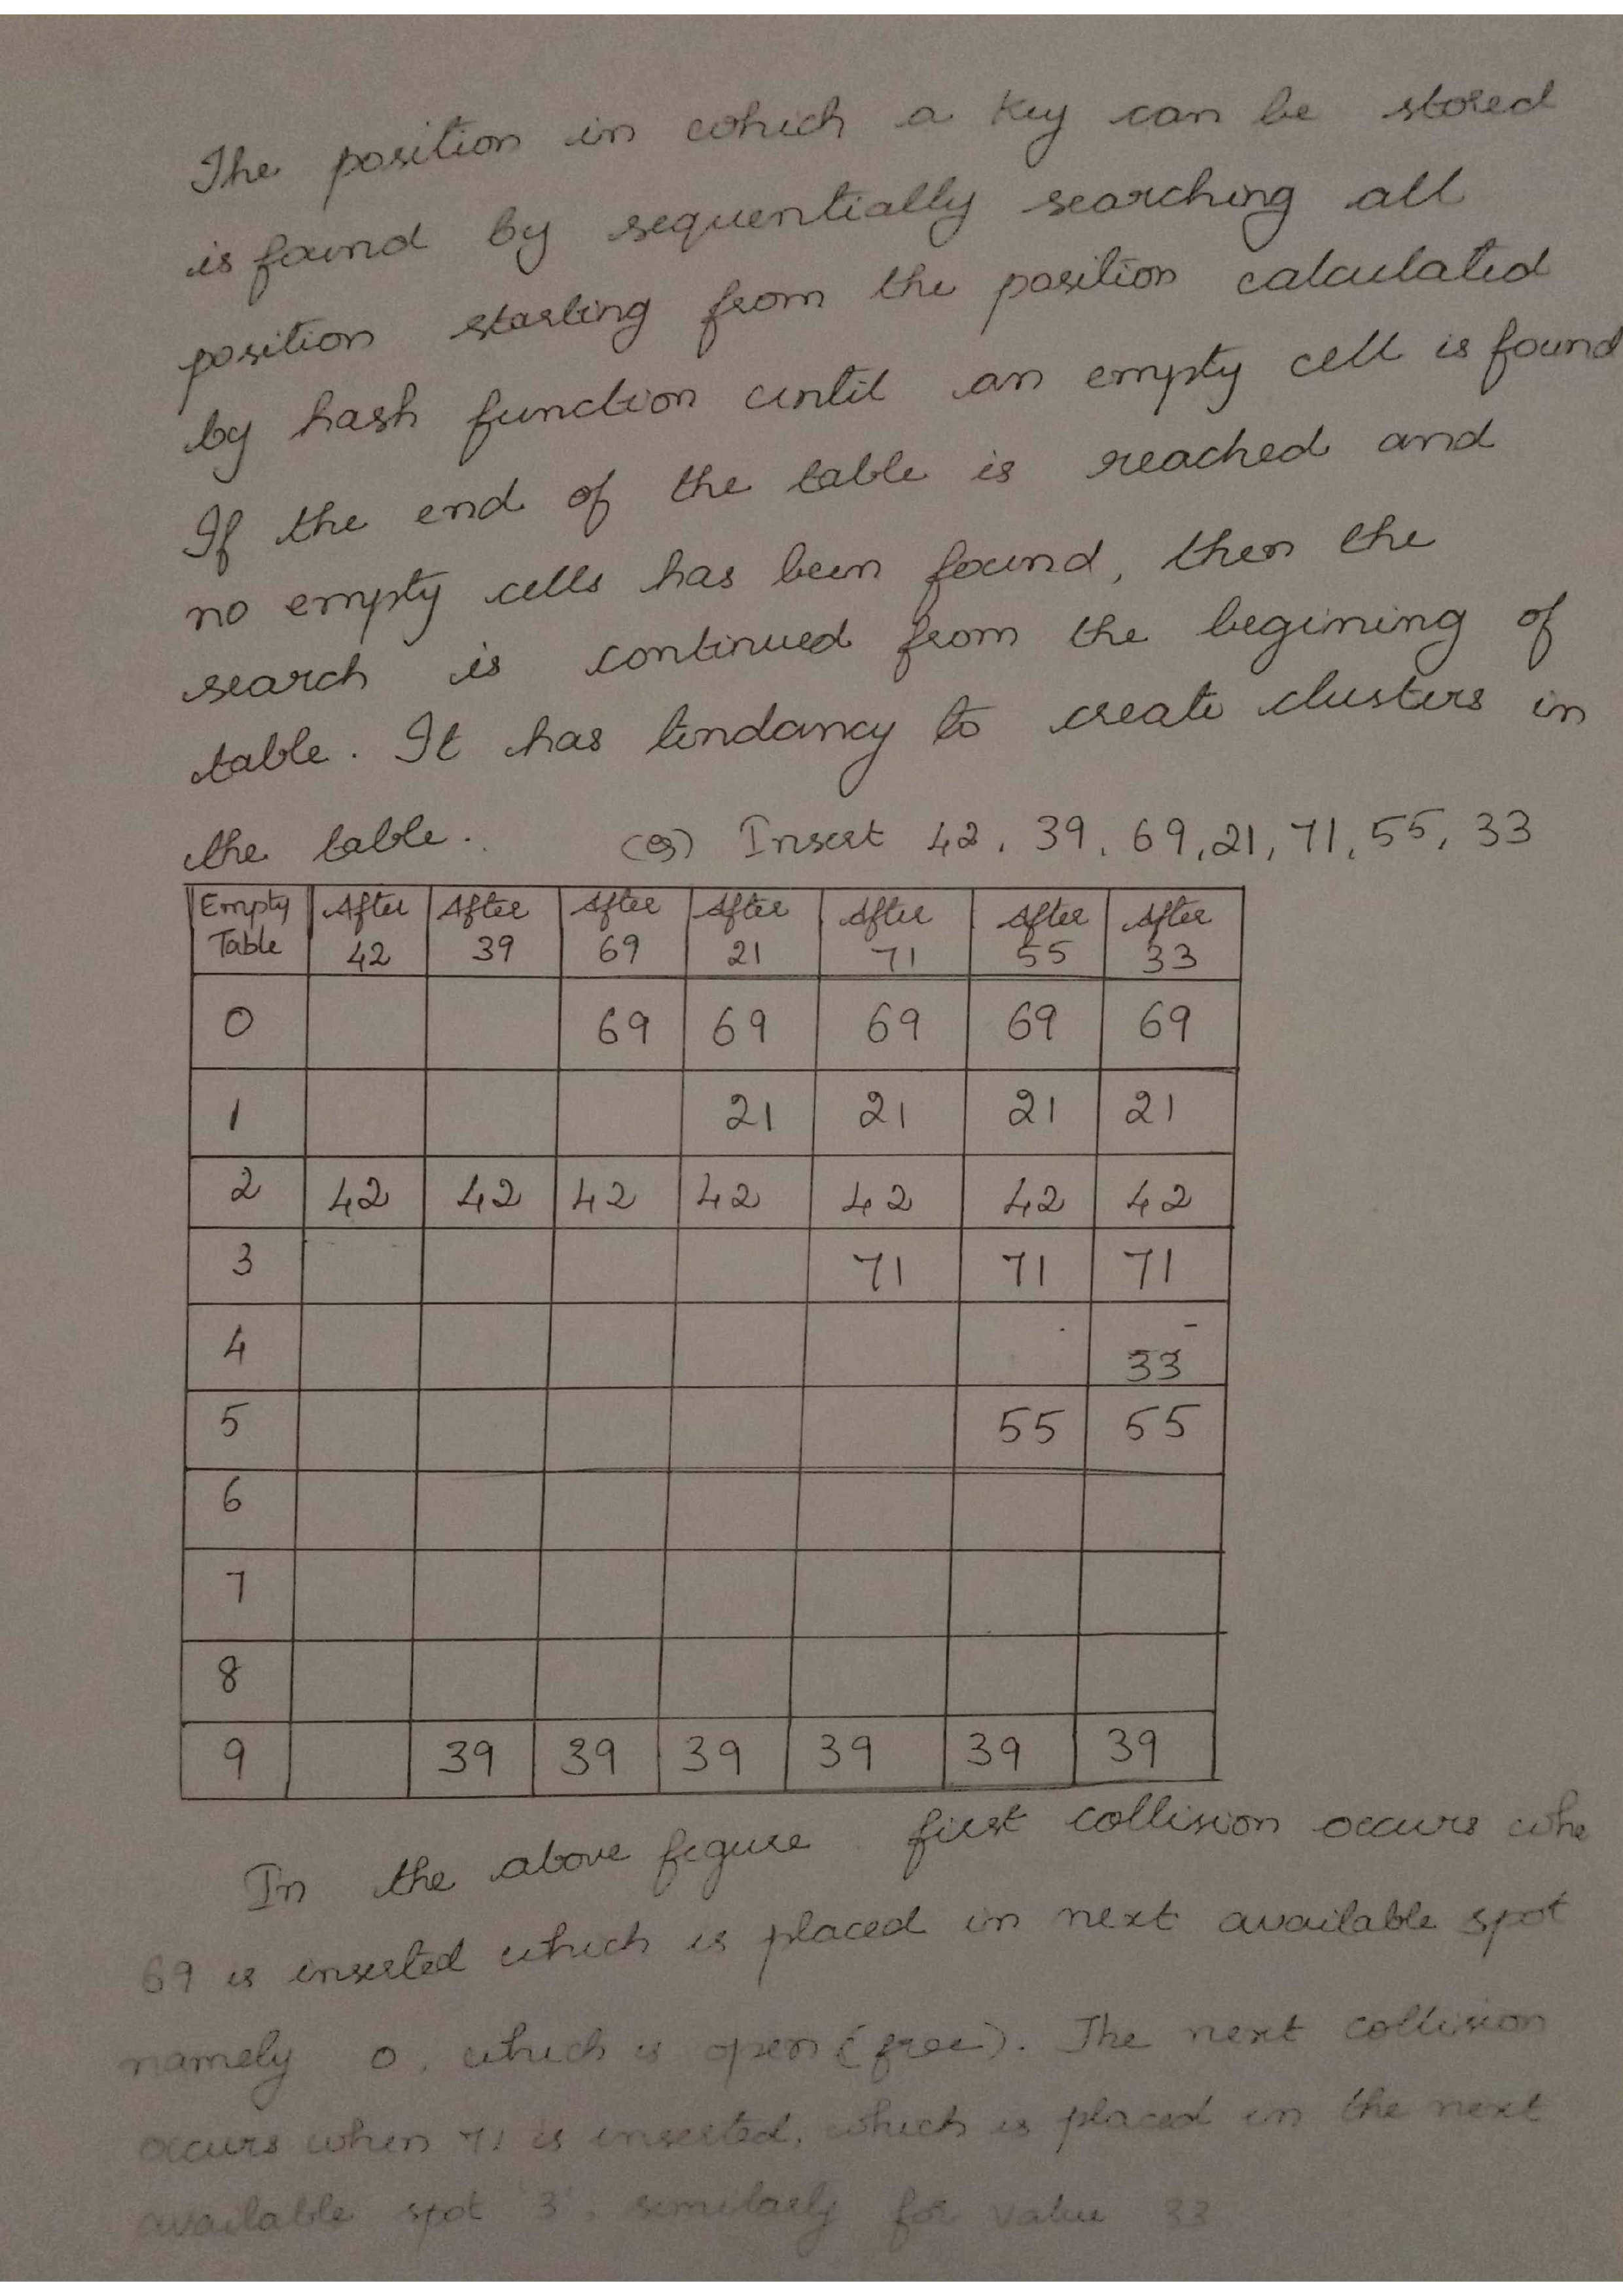 The position in which a key can be stored
is found by sequentially searching all
position starting from the position calculated
by hash function until an empty cell is found
If the end of the table is reached and
no empty cells has been found, then the
search is continued from the begining of
table. It has tendancy to create clusters in
the table. (eg) Insert 42, 39, 69, 21, 71, 55, 33
Empty Table After 42 After 39 After 69 After 21 After 71 After 55 After 33
0 69 69 69 69 69
1 21 21 21 21
2 42 42 42 42 42 42 42
3 71 71 71
4 33
5 55 55
6
7
8
9 39 39 39 39 39 39
In the above figure first collision occurs whe
69 is inserted which is placed in next available spot
namely 0, which is open (free). The next collision
occurs when 71 is inserted, which is placed in the next
available spot '3', similarly for value 33